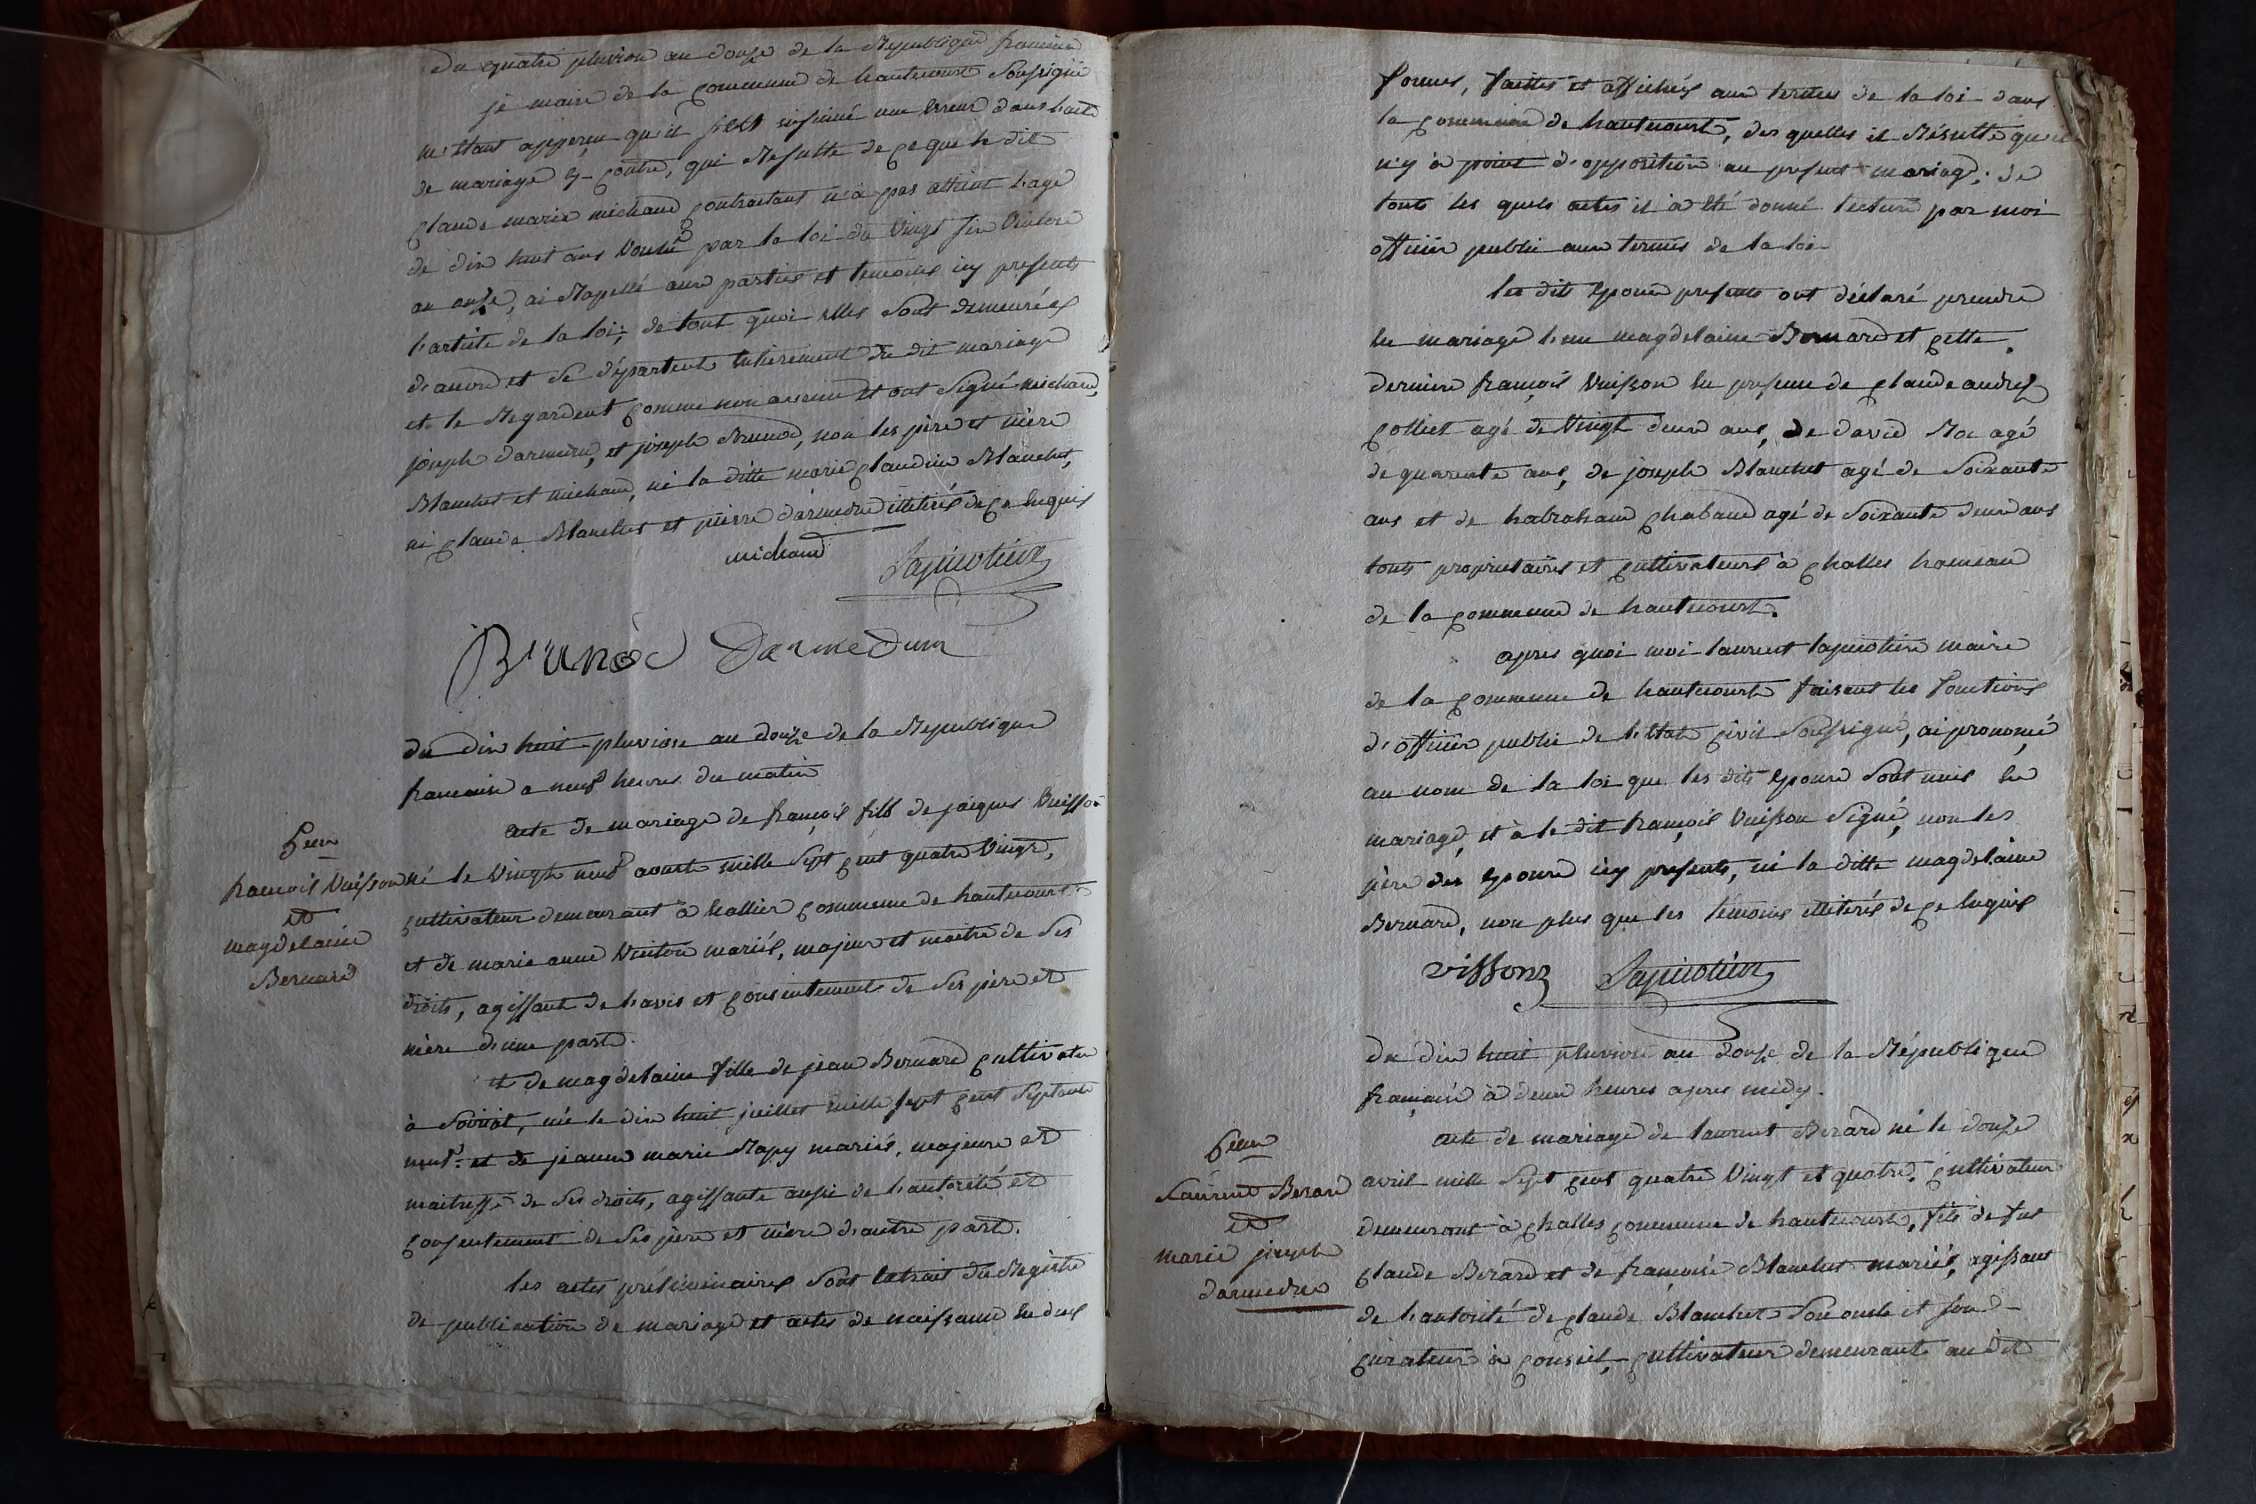 du quatre pluviose an douze de la Republique francaise
je maire de la commune de hautecourt soussigné
m'etant apperçu qu'il s'est insinué une erreur dans l'acte
de mariage cy-contre, qui resulte de ce que le dit
claude marie michaud contractant n'a pas atteint l'age
de dix huit ans voulu par la loi du vingt six ventose
an onze, ai rapellé aux parties et temoins icy presents
l'article de la loi; de tout quoi elles sont demeurées
d'accord et se départent entierement du dit mariage
et le regardent comme non avenu et ont signé michaud,
joseph darmedru, et joseph Brunod, non les père et mère
Blanchet et michaud, ni la ditte marie claudine Blanchet,
ni claude Blanchet et pierre darmedru illiterés de ce enquis
michaud Lapicotiere
Brunod Darmedru
du dix huit pluviose an douze de la Republique
francaise a neuf heures du matin
acte de mariage de françois fils de jacques Vuisson
6eme
né le vingt neuf aoust mille sept cent quatre vingt,
francois Vuisson
cultivateur demeurant à hallier commune de hautecourt
et
et de marie anne Vuiton mariés, majeur et maitre de ses
magdelaine
Bernard
droits, agissant de l'avis et consentement de ses père et
mère d'une part.
et de magdelaine fille de jean Bernard cultivateur
à née le dix huit juillet mille sept cent septante
neuf. et de jeanne marie Rapy mariés, majeure et
maitresse de ses droits, agissante aussi de l'autorité et
consentement de ses père et mère d'autre part.
les actes préliminaires sont extrait du Registre
de publication de mariage et actes de naissance en dues
formes, faittes et affichés aux termes de la loi dans
la commune de hautecourt, des quelles il Résulte qu'il
n'y à point d'opposition au present mariage; de
touts les quels actes il à été donné lecture par moi
officier public aux termes de la loi
les dits Epoux presents ont déclaré prendre
en mariage l'un magdelaine Bernard et cette
derniere françois Vuisson en presence de claude andré
Collet agé de vingt deux ans, de david Roc agé
de quarente ans, de joseph Blanchet agé de soixante
ans et de habraham Chabaud agé de soixante deux ans
touts proprietaires et cultivateurs à challes hameau
de la commune de hautecourt.
apres quoi moi laurent lapicotiere maire
de la commune de hautecourt faisant les fonctions
d'officier public de l'état civil soussigné, ai prononcé
au nom de la loi que les dits Epoux sont unis en
mariage, et à le dit françois Vuisson signé, non les
père des Epoux icy presents, ni la ditte magdelaine
Bernard, non plus que les temoins illiterés de ce enquis
vissonz Lapicotiere
du dix huit pluviose an douze de la République
française à deux heures apres midy.
acte de mariage de laurent Berard né le douze
6eme
avril mille sept cent quatre vingt et quatre, cultivateur
Laurent Berard
et
demeurant à challes commune de hautecourt, fils de fut
marie joseph
claude Berard et de françoise Blanchet mariés, agissant
darmedru
de l'autorité de claude Blanchet son oncle et son
curateur à conseil, cultivateur demeurant au dit